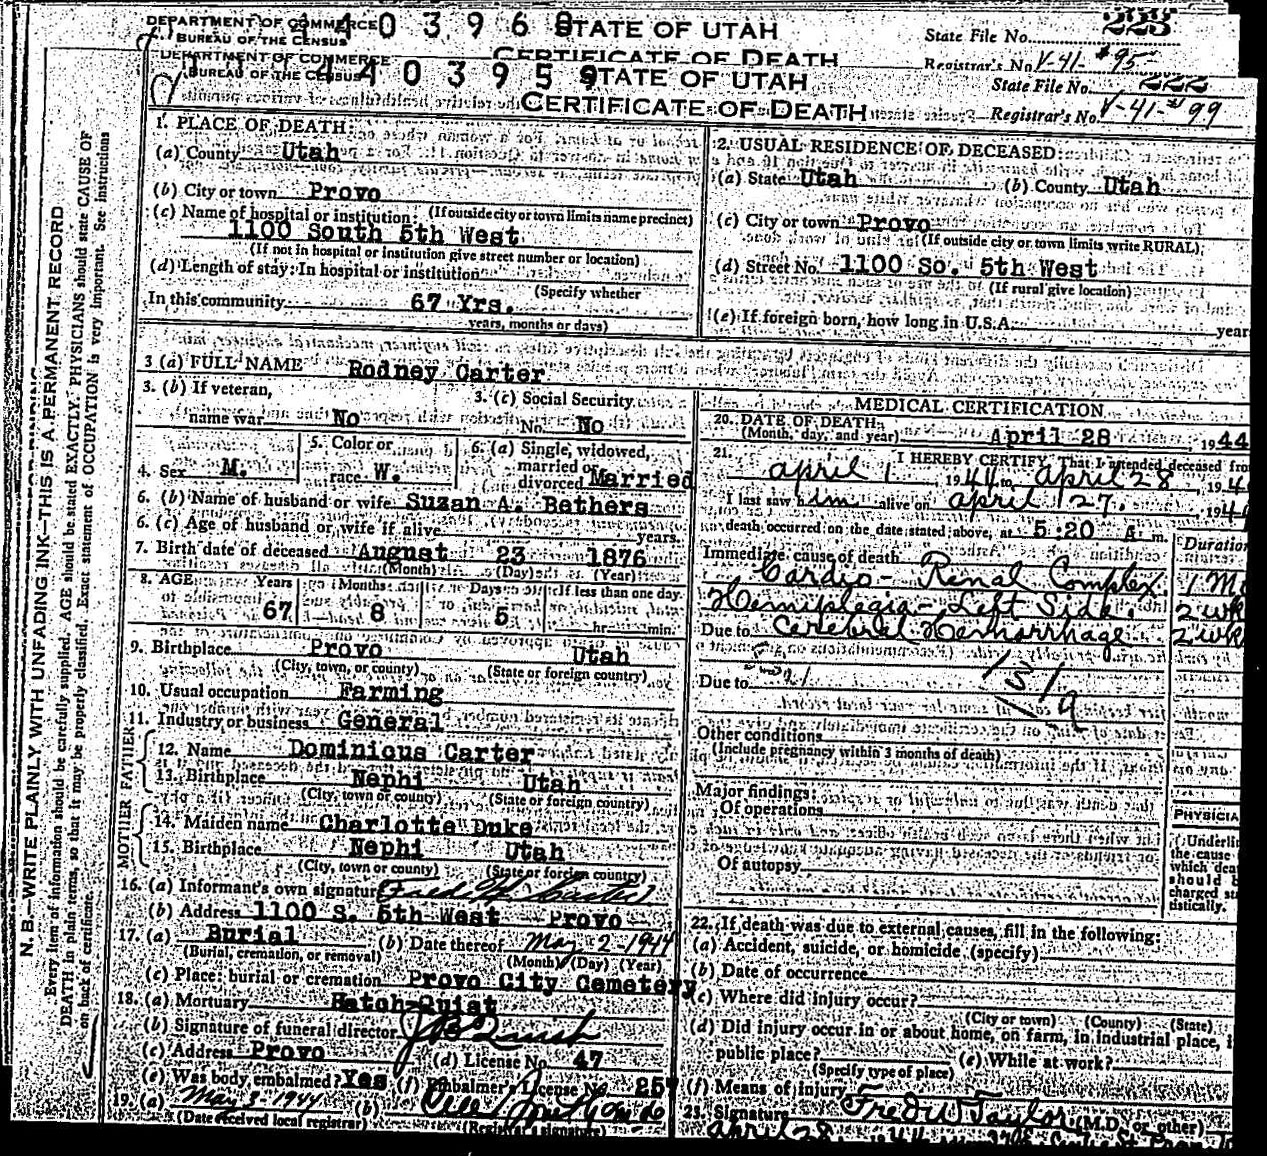 DEPARTMENT OF COMMERCE
BUREAU OF THE CENSUS
403968
STATE OF UTAH
CERTIFICATE OF DEATH
State File No. 223
Registrar's No. V-41- #95
DEPARTMENT OF COMMERCE
BUREAU OF THE CENSUS
403959
STATE OF UTAH
CERTIFICATE OF DEATH
State File No. 222
Registrar's No. V-41-#99
N. B.—WRITE PLAINLY WITH UNFADING INK—THIS IS A PERMANENT RECORD
Every item of information should be carefully supplied. AGE should be stated EXACTLY. PHYSICIANS should state CAUSE OF
DEATH in plain terms, so that it may be properly classified. Exact statement of OCCUPATION is very important. See instructions
on back of certificate.
1. PLACE OF DEATH:
(a) County Utah
(b) City or town Provo
(If outside city or town limits name precinct)
(c) Name of hospital or institution:
1100 South 5th West
(If not in hospital or institution give street number or location)
(d) Length of stay: In hospital or institution
(Specify whether
In this community 67 Yrs.
years, months or days)
2. USUAL RESIDENCE OF DECEASED:
(a) State Utah (b) County Utah
(c) City or town Provo
(If outside city or town limits write RURAL)
(d) Street No. 1100 So. 5th West
(If rural give location)
(e) If foreign born, how long in U.S.A. year
3 (a) FULL NAME Rodney Carter
3. (b) If veteran,
name war No
3. (c) Social Security
No. No
4. Sex M.
5. Color or
race W.
6. (a) Single, widowed,
married or
divorced Married
6. (b) Name of husband or wife Suzan A. Bethers
6. (c) Age of husband or wife if alive years.
7. Birth date of deceased August 23 1876
(Month) (Day) (Year)
8. AGE Years Months Days If less than one day
67 8 5 hr. min.
9. Birthplace Provo Utah
(City, town, or county) (State or foreign country)
10. Usual occupation Farming
11. Industry or business General
FATHER
12. Name Dominicus Carter
13. Birthplace Nephi Utah
(City, town or county) (State or foreign country)
MOTHER
14. Maiden name Charlotte Duke
15. Birthplace Nephi Utah
(City, town or county) (State or foreign country)
16. (a) Informant's own signature Fred H. Carter
(b) Address 1100 S. 5th West Provo
17. (a) Burial (b) Date thereof May 2-1944
(Burial, cremation, or removal) (Month) (Day) (Year)
(c) Place: burial or cremation Provo City Cemetery
18. (a) Mortuary Hatch-Quist
(b) Signature of funeral director
(c) Address Provo (d) License No. 47
(e) Was body embalmed? Yes (f) Embalmer's License No. 257
19. (a) May 3, 1944 (b)
(Date received local registrar) (Registrar's signature)
MEDICAL CERTIFICATION
20. DATE OF DEATH:
(Month, day, and year) April 28, 1944
21. I HEREBY CERTIFY That I attended deceased from
april 1, 1944 to april 28, 194
I last saw him alive on april 27, 194
death occurred on the date stated above, at 5:20 A. m.
Duration
Immediate cause of death
Cardio-Renal Complex. 1 Mo
Hemiplegia-Left Side. 2 wk
Due to Cerebral Hemorrhage 2 wk
Due to
131a
Other conditions
(Include pregnancy within 3 months of death)
Major findings:
Of operations
Of autopsy
PHYSICIA
Underlin
the cause
which deat
should b
charged sta
tistically.
22. If death was due to external causes, fill in the following:
(a) Accident, suicide, or homicide (specify)
(b) Date of occurrence
(c) Where did injury occur?
(City or town) (County) (State)
(d) Did injury occur in or about home, on farm, in industrial place, i
public place? (e) While at work?
(Specify type of place)
(f) Means of injury
23. Signature Fred W Taylor (M.D. or other)
april 28